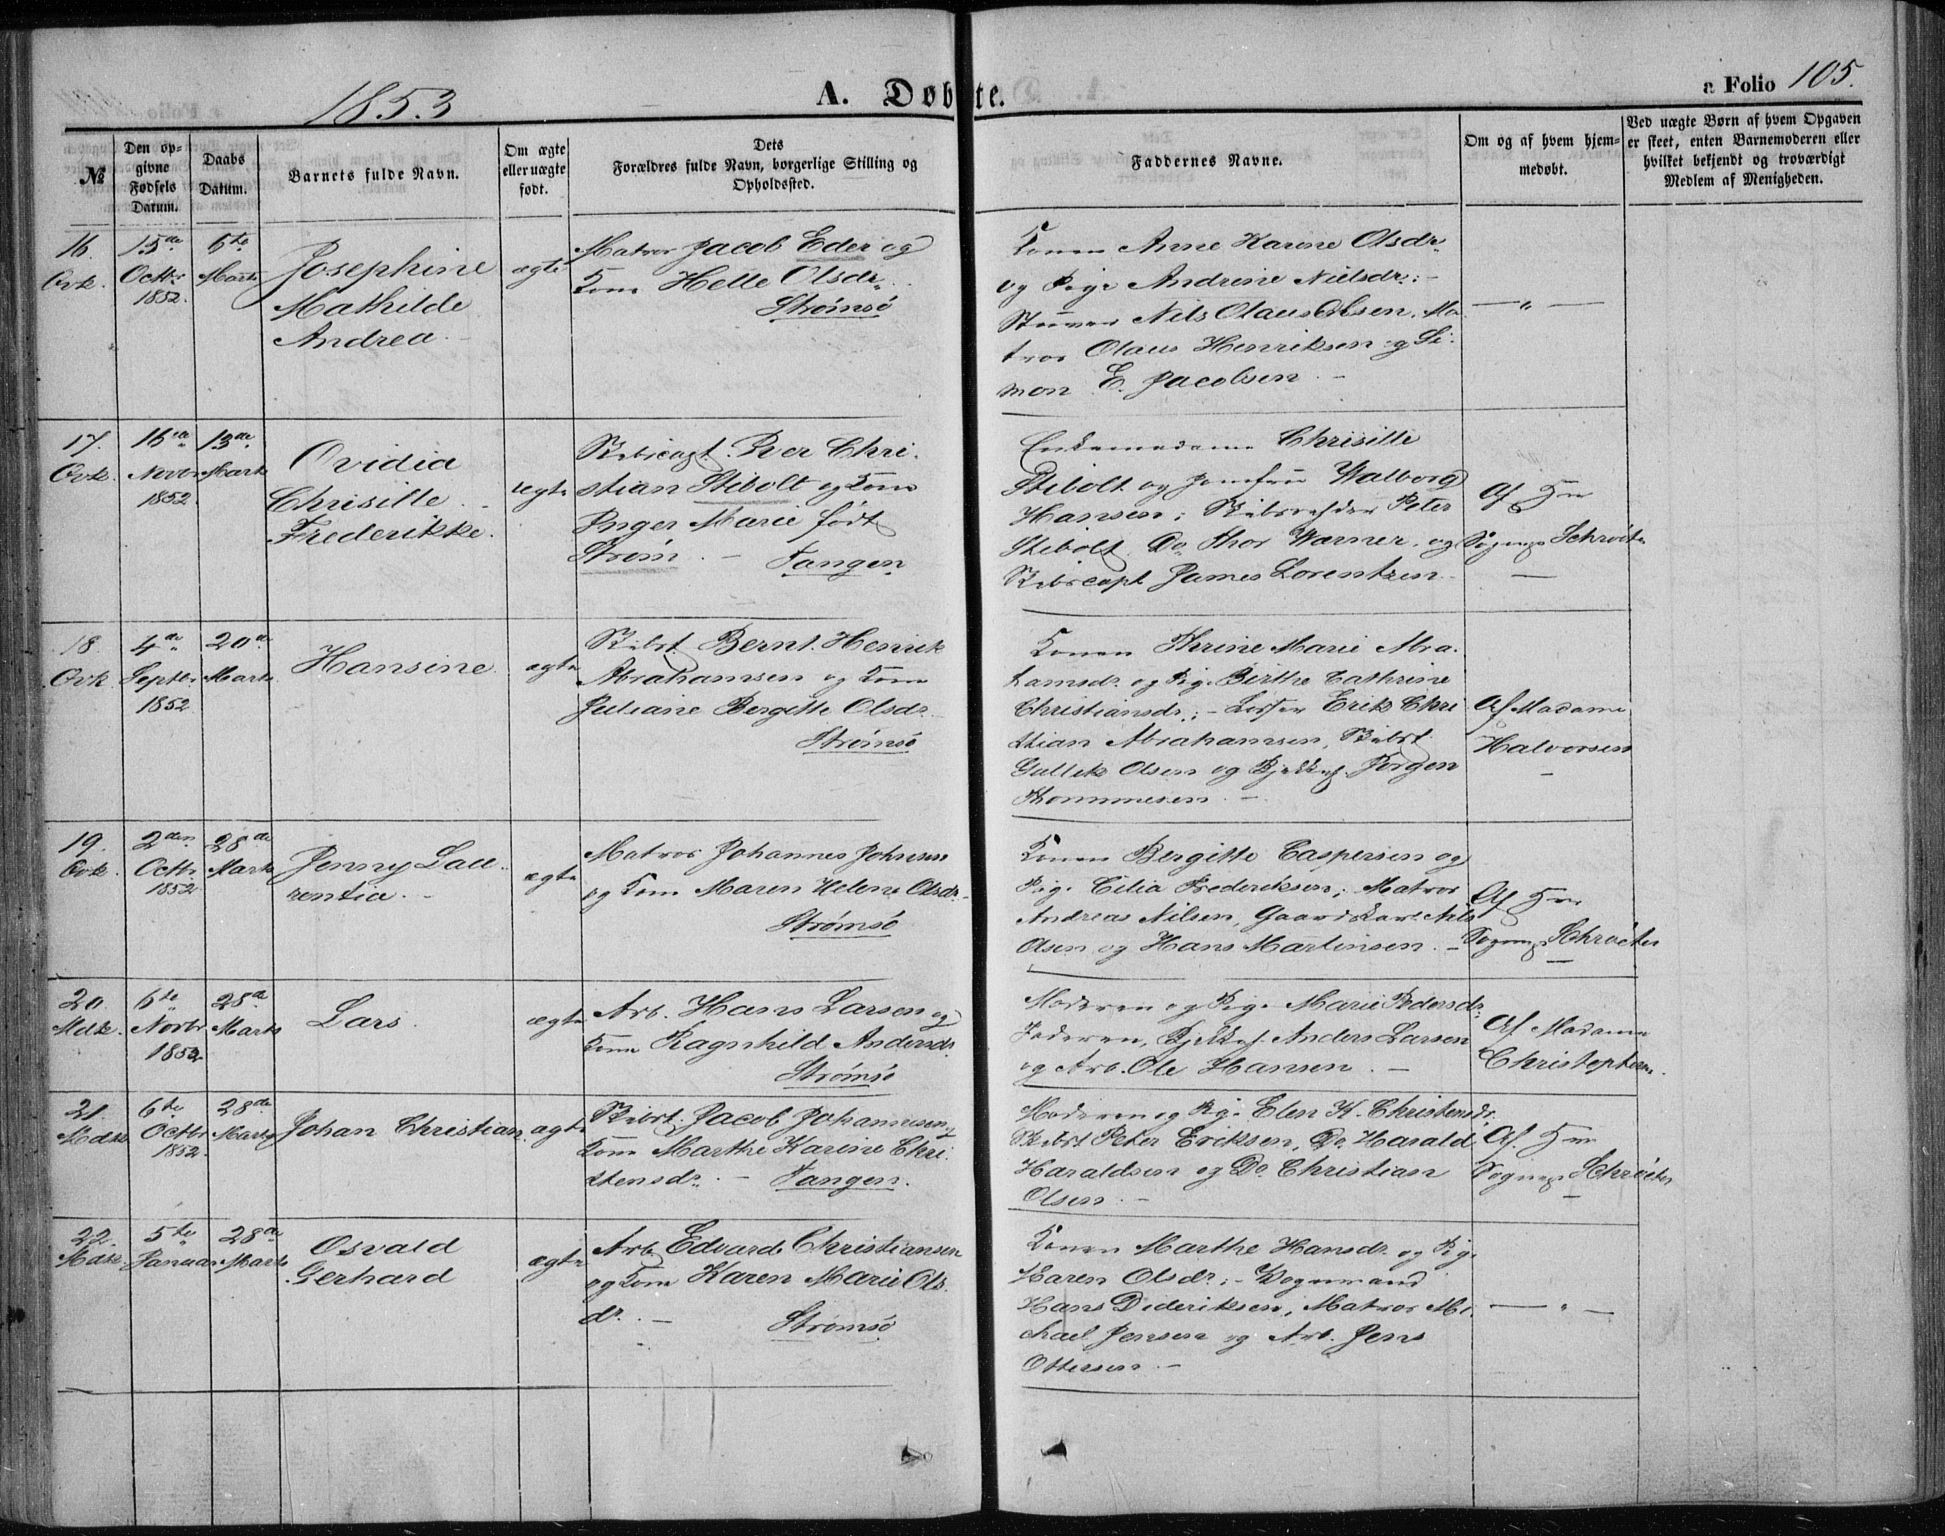 1853
A. Døbte.
a Folio 105.
№
Den opgivne Fødsels Datum.
Daabs Datum.
Barnets fulde Navn.
Om ægte eller uægte født.
Dets Forældres fulde Navn, borgerlige Stilling og Opholdssted.
Faddernes Navne.
Om og af hvem hjemmedøbt.
Ved uægte Børn af hvem Opgaven er skeet, enten Barnemoderen eller hvilket bekjendt og troværdigt Medlem af Menigheden.
16.
Qvk.
15de
Octbr
1852.
6te
Marts
Josephine
Mathilde
Andrea
ægte
Matros Jacob Eder og
Kone Helle Olsdr.
Strømsø
Konen Anne Karine Olsdr.
og Pige Andrine Nielsdr: –
Stuver Nils Olaus Olsen, Ma-
tros Olaus Henriksen og Si-
mon E. Jacobsen –
— " —
17.
Qvk.
16de
Novbr
1852.
13de
Marts
Ovidia
Chrisille
Frederikke.
ægte
Skibscapt. Peer Chri-
stian Stibolt og Kone
Inger Marie født
Strøm. – Tangen
Enkemadame Chrisille
Stibolt og Jomfru Walborg
Hansen; Skibsrheder Peter
Stibolt, Do Thor Warner, og
Skibscapt James Lorentzen
Af Hr
Sognep Schrøter
—
18.
Qvk
4de
Septbr
1852
20de
Marts
Hansine
ægte
Skibst. Bernt Henrik
Abrahamsen og Kone
Juliane Bergitte Olsdr.
Strømsø
Konen Thrine Marie Abra-
hamsdr. og Pige Birthe Cathrine
Christiansdr; – Lodser Erik Chri
stian Abrahamsen, Skibst.
Gullik Olsen og Jørgen
Thommesen. –
Af Madame
Halvorsen
—
19.
Qvk
2den
Octbr
1852
28de
Marts
Jenny Lau-
rentia. –
ægte
Matros Johannes Johnsen
og Kone Maren Helene Olsdr.
Strømsø
Konen Bergitte Caspersen og
Pige Cilia Frederiksen; Matros
Andreas Nilsen, Gaardskarl Nils
Olsen og Hans Martinsen. –
Af Hr
Sognep Schrøter
—
20
Mdk.
6te
Novbr
1852.
28de
Marts
Lars.
ægte
Arb. Hans Larsen og
Kone Ragnhild Andersdr.
Strømsø
Moderen og Pige Marie Pedersdr:
Faderen, Anders Larsen
og Arb. Ole Hansen. –
Af Madame
21.
Mdk
6te
Octbr
1852.
28de
Marts
Johan Christian
ægte
Skibst. Jacob Johannesen og
Kone Marthe Karine Chri-
stensdr. – Tangen.
Moderen og Pige Elen K. Christensdr.
Skibst Peter Eriksen, Do Harald
Haraldsen og Do Christian
Olsen. –
Af. Hr
Sognep Schrøter
—
22.
Mdk
5te
Januar
28de
Marts
Osvald
Gerhard
ægte
Arb Edvard Christiansen
og Kone Karen Marie Ols-
dr. – Strømsø
Konen Marthe Hansdr. og Pige
Karen Olsdr; – Vognmand
Hans Dideriksen, Matros Mi-
chael Jensen og Arb. Jens
Ottersen. –
— " —